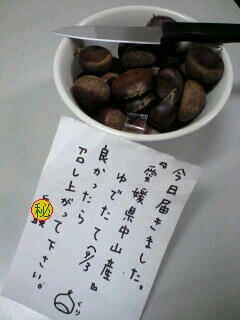 今日届きました。
『愛媛県中山産』
ゆでたて(9/3)
良かったら
召し上がって下さい。
くり
㊙